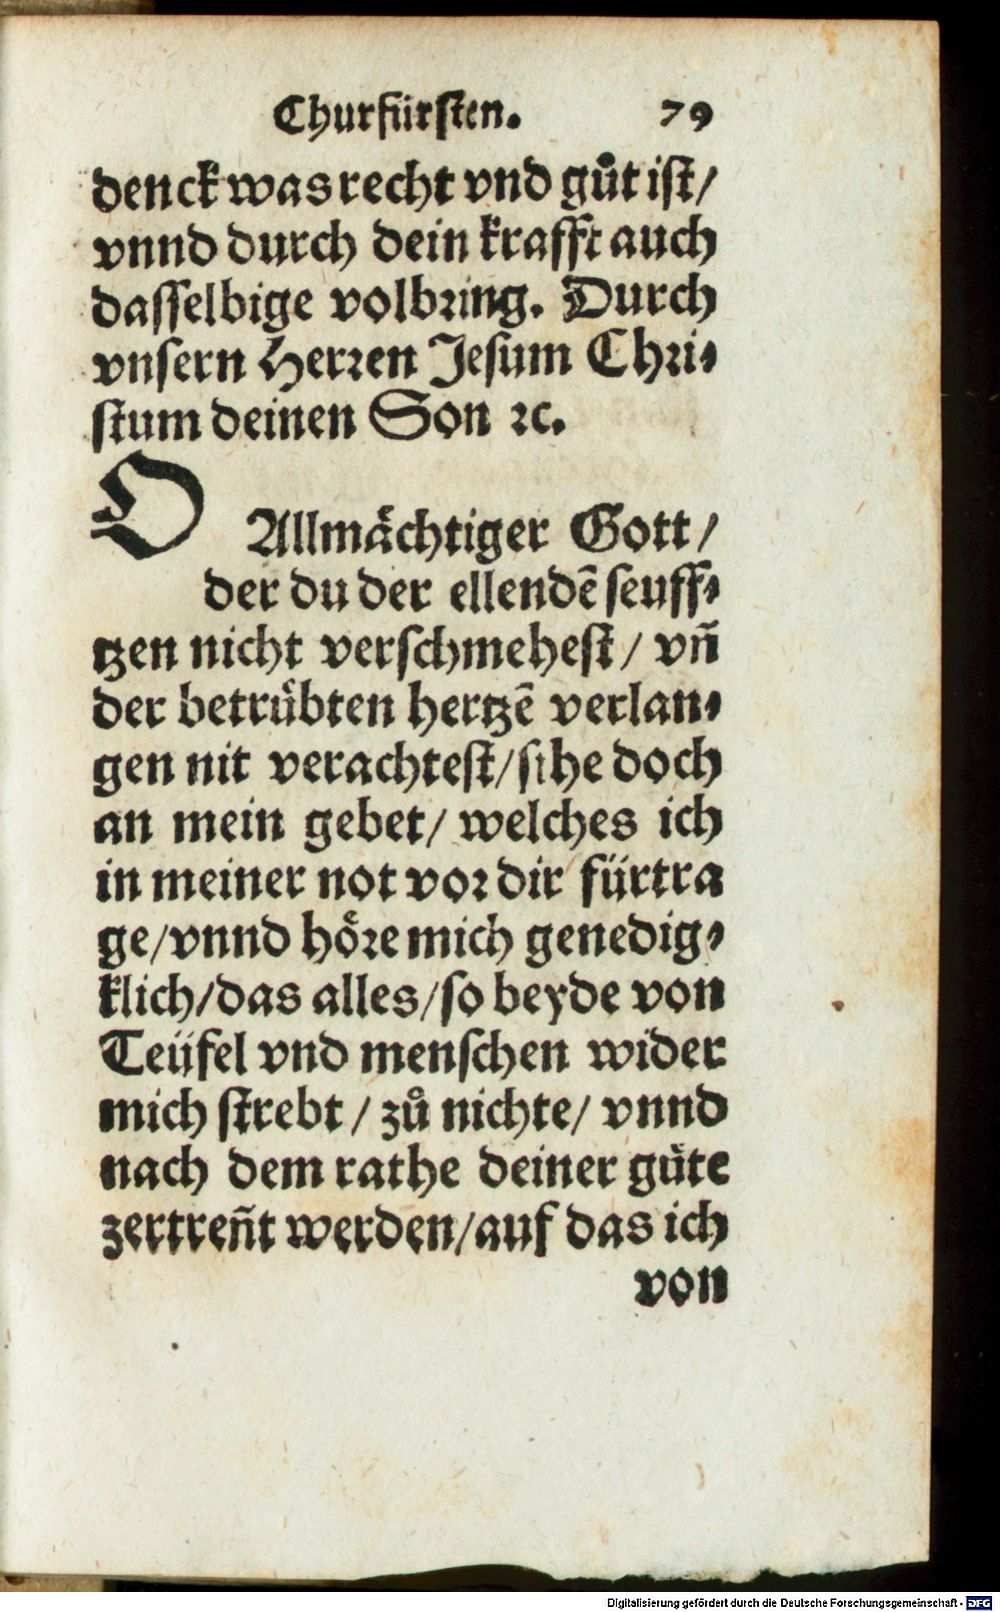 Churfürsten. 79
denck was recht vnd gůt ist/
vnnd durch dein krafft auch
dasselbige volbring. Durch
vnsern Herren Jesum Chri-
stum deinen Son ꝛc.
O Allmächtiger Gott/
der du der ellendē seuff-
tzen nicht verschmehest/ vñ
der betrübten hertzē verlan-
gen nit verachtest/ sihe doch
an mein gebet/ welches ich
in meiner not vor dir fürtra
ge/ vnnd höre mich genedig-
klich/ das alles/ so beyde von
Teüfel vnd menschen wider
mich strebt/ zů nichte/ vnnd
nach dem rathe deiner güte
zertreñt werden/ auf das ich
von
Digitalisierung gefördert durch die Deutsche Forschungsgemeinschaft - DFG